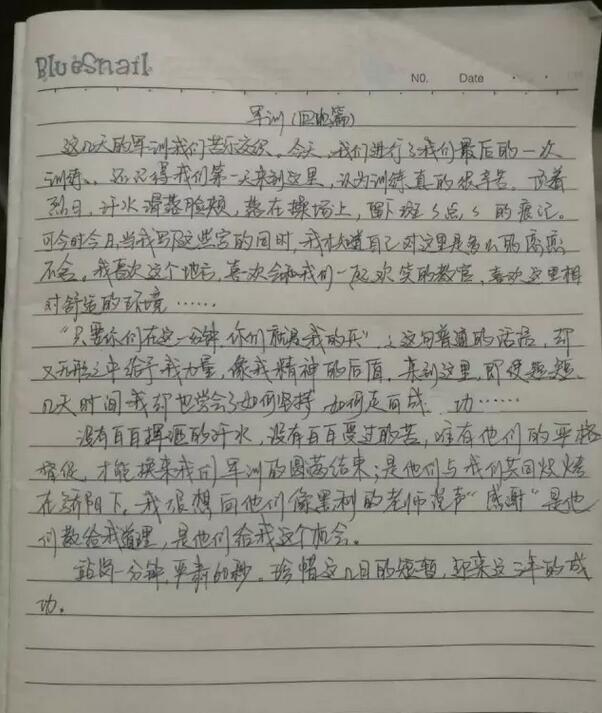 BlueSnail
NO. Date
军训(回忆篇)
这几天的军训我们苦乐交织。今天,我们进行了我们最后的一次
训练、还记得我们第一天来到这里,认为训练真的很辛苦。顶着
烈日,汗水滑落脸颊,落在操场上,留下斑斑点点的痕记。
可今时今日,当我写下这些字的同时,我才知道自己对这里是多么的恋恋
不舍。我喜欢这个地方,喜欢会和我们一起欢笑的教官,喜欢这里相
对舒适的环境……
"只要你们在这一分钟,你们就是我的兵",这句普通的话语,却
又无形之中给予我力量,像我精神的后盾。来到这里,即使短短
几天时间我却也学会了如何坚持,如何走向成 功……
没有白白挥洒的汗水,没有白白受过的苦,唯有他们的严格
督促,才能换来我们军训的圆满结束;是他们与我们共同烘烤
在骄阳下。我很想向他们像犀利的老师说声"感谢"是他
们教给我道理,是他们给我这个机会。
站岗一分钟,严肃60秒。珍惜这几日的短暂,迎来这三年的成
功。